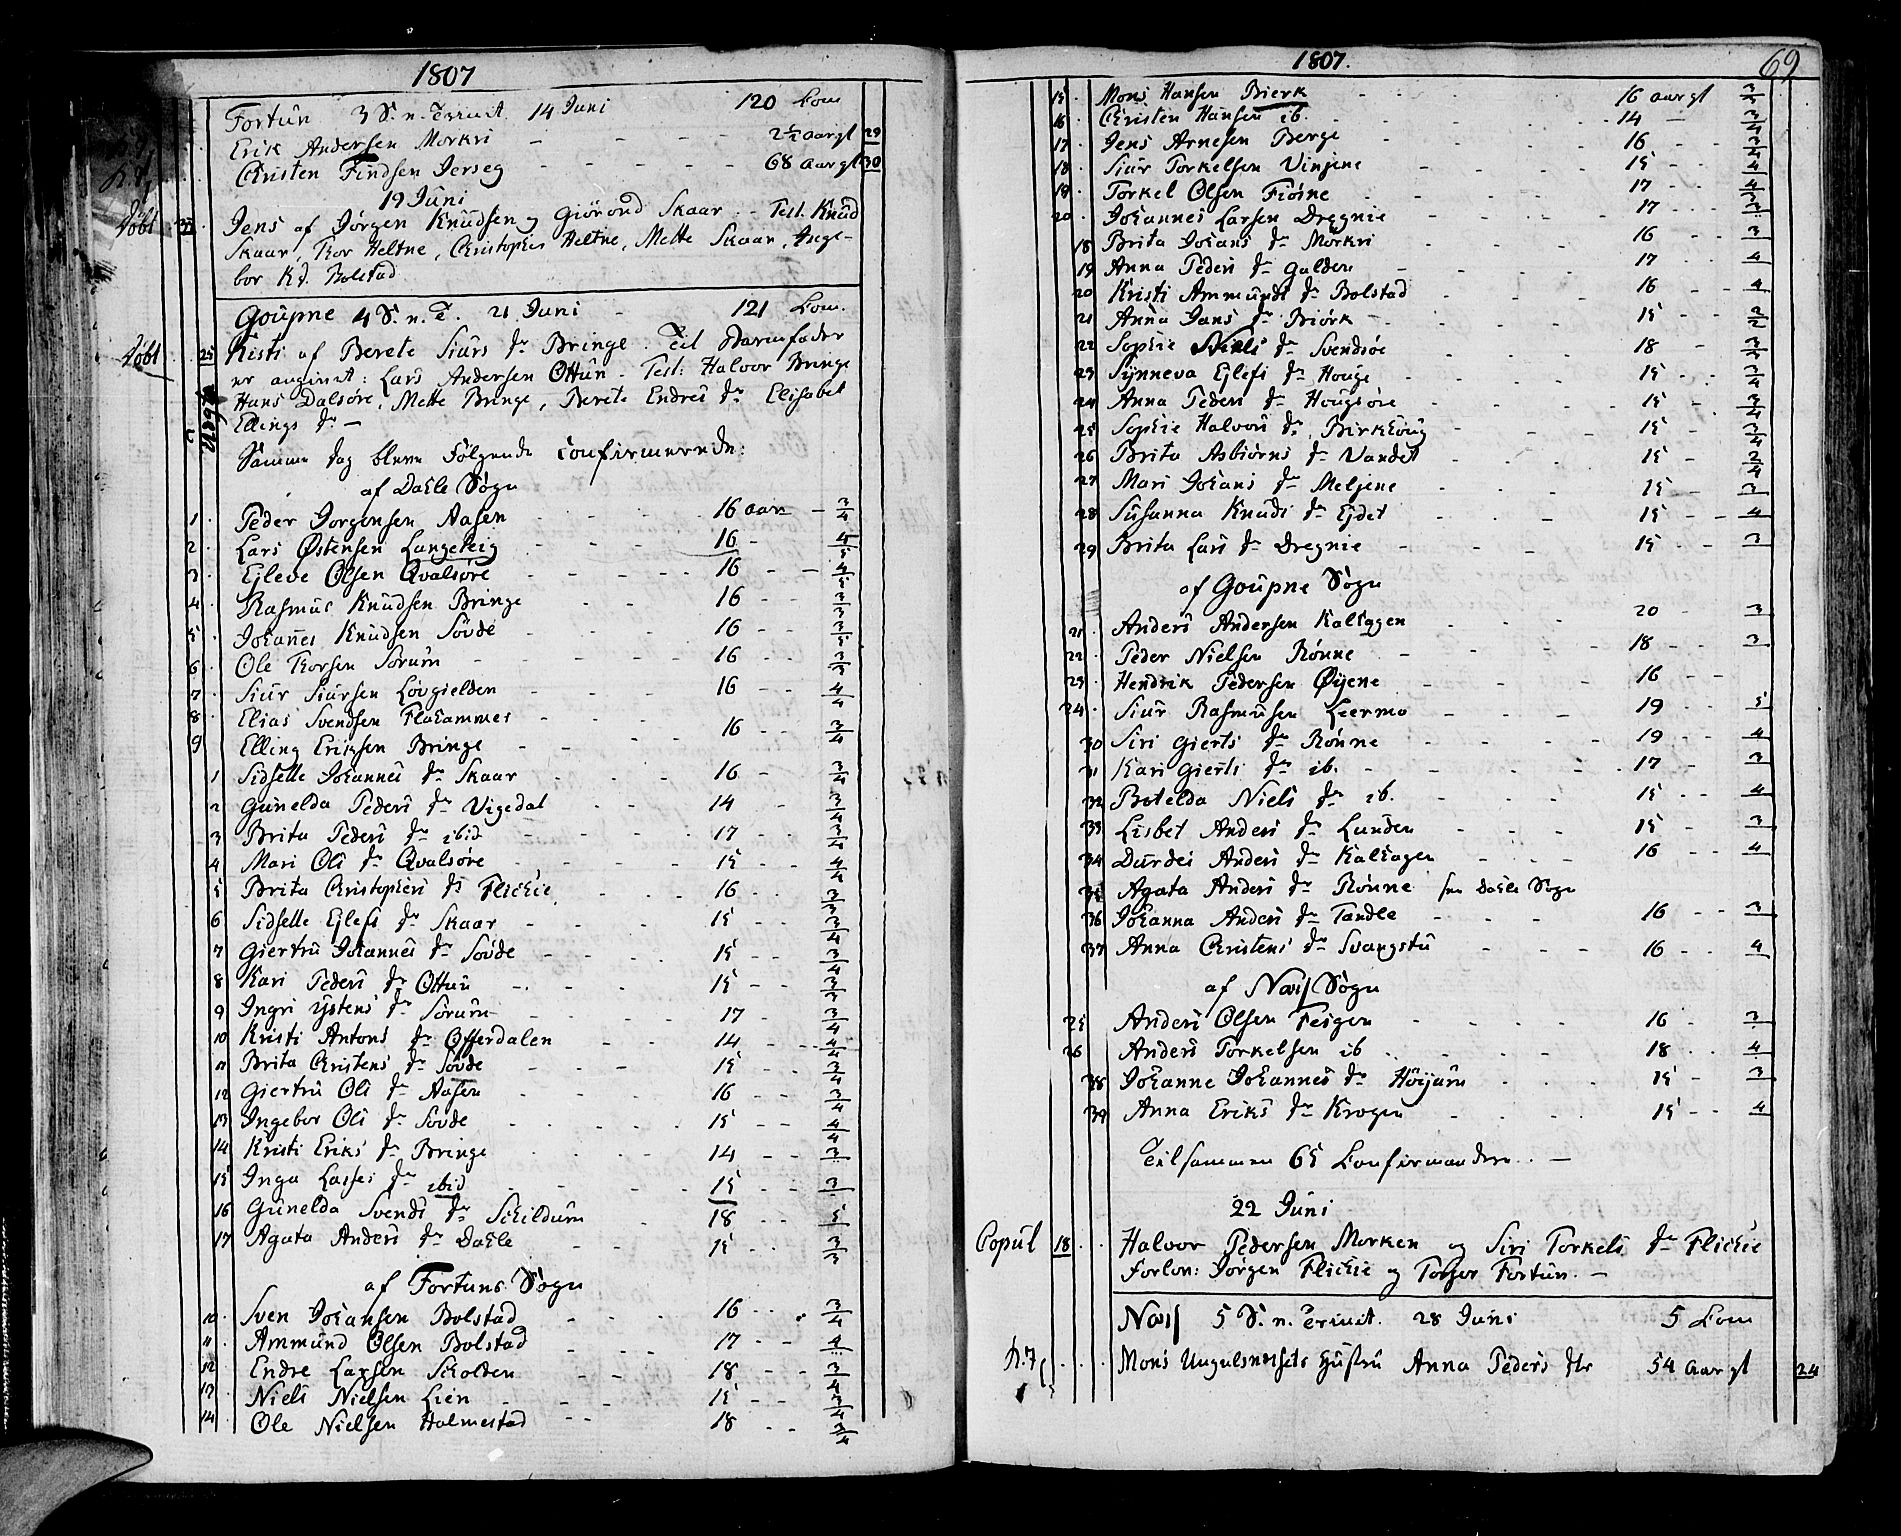 1807
Fortún 3 S. n. Trinit. 14 Juni 120 Com
Erik Andersen Morkri - - - - 2 1/2 aargl 29
Christen Findsen Jerseg - - - - 68 aargl 30
19 Júni
Døbt Jens af Jørgen Knúdsen og Giørond Skaar - Test. Knúd
Skaar, Thor Heltne, Christopher Heltne, Mette Skaar, Inge-
bor Kd. Bolstad
Goúpne 4 S. n. T. 21 Júni - 121 Com.
Døbt 25 Kisti af Berete Siúrs dr Bringe. Til Barnefader
er angivet: Lars Andersen Ottún - Test: Halvor Bringe
Hans Dalsøre, Mette Bringe, Berete Endres dr Elisabet
Ellings dr -
Samme dag bleve Følgende Confirmerede:
af Dahle Sogn
1. Peder Jorgensen Aasen 16 aar - 3/4
2. Lars Østensen Langeteig 16 - 4/5
3. Ejleve Olsen Qvalsøre 16 - - 4/5
4. Rasmús Knúdsen Bringe 16 - - 3/3
5. Johannes Knúdsen Sövde 16 - - 3/5
6. Ole Thorsen Sorúm 16 - - 3/3
7. Siúr Siúrsen Lovgielden 16 - - 4/4
8. Elias Svendsen Flahammer
9 Elling Eriksen Bringe 16 - - 3/4
1 Sidselle Johannes dr Skaar 16 - 3/4
2 Gúnelda Peders dr Vigedal 14 - 3/4
3 Brita Peders dr ibid 17 - - 3/4
4 Mari Ols dr Qvalsøre 15 - - 4/4
5 Brita Christophers dr Flichie 16 - - 3/3
6 Sidselle Ejlefs dr Skaar 15 - - 3/4
7 Giertrú Johannes dr Sövde 15 - - 3/4
8 Kari Peders dr Ottún 15 - - 3/3
9 Ingri ystens dr Sorúm 17 - 3/4
10 Kristi Antons dr Offerdalen 14 - - 4/4
11 Brita Christens dr Sövde 15 - - 3/4
12 Giertrú Ols dr Aasen 16 - - 3/4
13 Ingebor Ols dr Sövde 15 - - 4/4
14 Kristi Eriks dr Bringe 14 - - 3
15 Inga Lasses dr ibid 15 - - 3
16 Gúnelda Svends dr Schildúm 18 - - 5
17 Agata Anders dr Dahle 15 - - 3/3
af Fortuns Sogn
10. Sven Johansen Bolstad 16 - - 3/4
11. Ammúnd Olsen Bolstad 17 - - 4
12. Endre Larsen Scholden 18 - - 3/4
13. Niels Nielsen Lien 15 - - 3/4
14. Ole Nielsen Halmestad 18 - - 3/4
1807. 69
15. Mons Hansen Bierk 16 aargl 3/3
16. Christen Hansen ib. 14 - 3/4
17. Jens Arnesen Berge 16 - - 3/4
18. Siúr Torkelsen Vinjene 15 - - 4/4
19. Torkel Olsen Fiöine 17 - - 4
20. Johannes Larsen Dregnie 17 - - 3
18 Brita Johans dr Morkri 16 - - 3
19 Anna Peders dr Galden 17 - - 4
20 Kristi Ammúnds dr Bolstad 16 - - 4
21 Anna Jans dr Biörk 15 - - 2/2
22 Sophie Niels dr Svendsöe 18 - 3/3
23 Sÿnneva Ejlefs dr Houge 15 - - 3/4
24 Anna Peders dr Hougsøre 15 - - 3/4
25 Sophie Halvors dr Birkhoúg 15 - 3/4
26 Brita Asbiørns dr Vandet 15 - 2/4
27 Mari Johans dr Meljene 15 - - 3
28 Súsanna Knúds dr Ejdet 15 - - 4
29 Brita Lars dr Dregnie 15 - - 3
af Goúpne Sogn
21. Anders Andersen Kalhagen 20 - 3
22. Peder Nielsen Rönne 18 - - 3
23. Hendrik Pedersen Øyene 16 - -
24. Siúr Rasmúsen Leermo 19 - - 5
30 Siri Gierts dr Rönne 19 - - 4
31 Kari Gierts dr ib. 17 - 3
32 Botelda Niels dr ib. 15 - - 4
33 Lisbet Anders dr Lunden 15 - 3
34 Dúrdei Anders dr Kalhagen 16 - - 4
35 Agata Anders dr Rönne see Dahle Sogn
36 Johanna Anders dr Tandle 16 - - 3
37 Anna Christens dr Svangstú 16 - - 4
af Nais Sogn
25 Anders Olsen Feigen 16 - 3
26 Anders Torkelsen ib 18 - - 4
38 Johanne Johannes dr Höijúm 15 - 3
39 Anna Eriks dr Krogen 15 - - 4
Tilsammen 65 Confirmander. -
22 Júni
Copúl 18 Halvor Pedersen Morken og Siri Torkels dr Flichie
Forlov: Jörgen Flichie og Torger Fortún. -
Nais 5 S. n. Trinit. 28 Juni 5 Com
Mons Ungulsnæsets Hústrú Anna Peders dtr 54 aargl 24